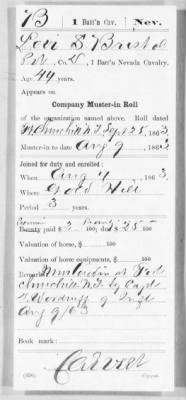 B | 1 Batt'n Cav. | Nev.
Levi S Bristol
Pvt., Co. D, 1 Batt'n Nevada Cavalry.
Age 44 years.
Appears on
Company Muster-in Roll
of the organization named above. Roll dated
Ft. Churchill N.T. Sept 25, 1863
Muster-in to date Aug 9, 1863
Joined for duty and enrolled:
When Aug 4, 1863
Where Gold Hill
Period 3 years
Bounty paid $ 100; due $ 100
Valuation of horse, $ 100
Valuation of horse equipments, $ 100
Remarks: Mustered in at Fort
Churchill N.T. by Capt
Aug 9/63
Book mark:
Calvert
Copyist.